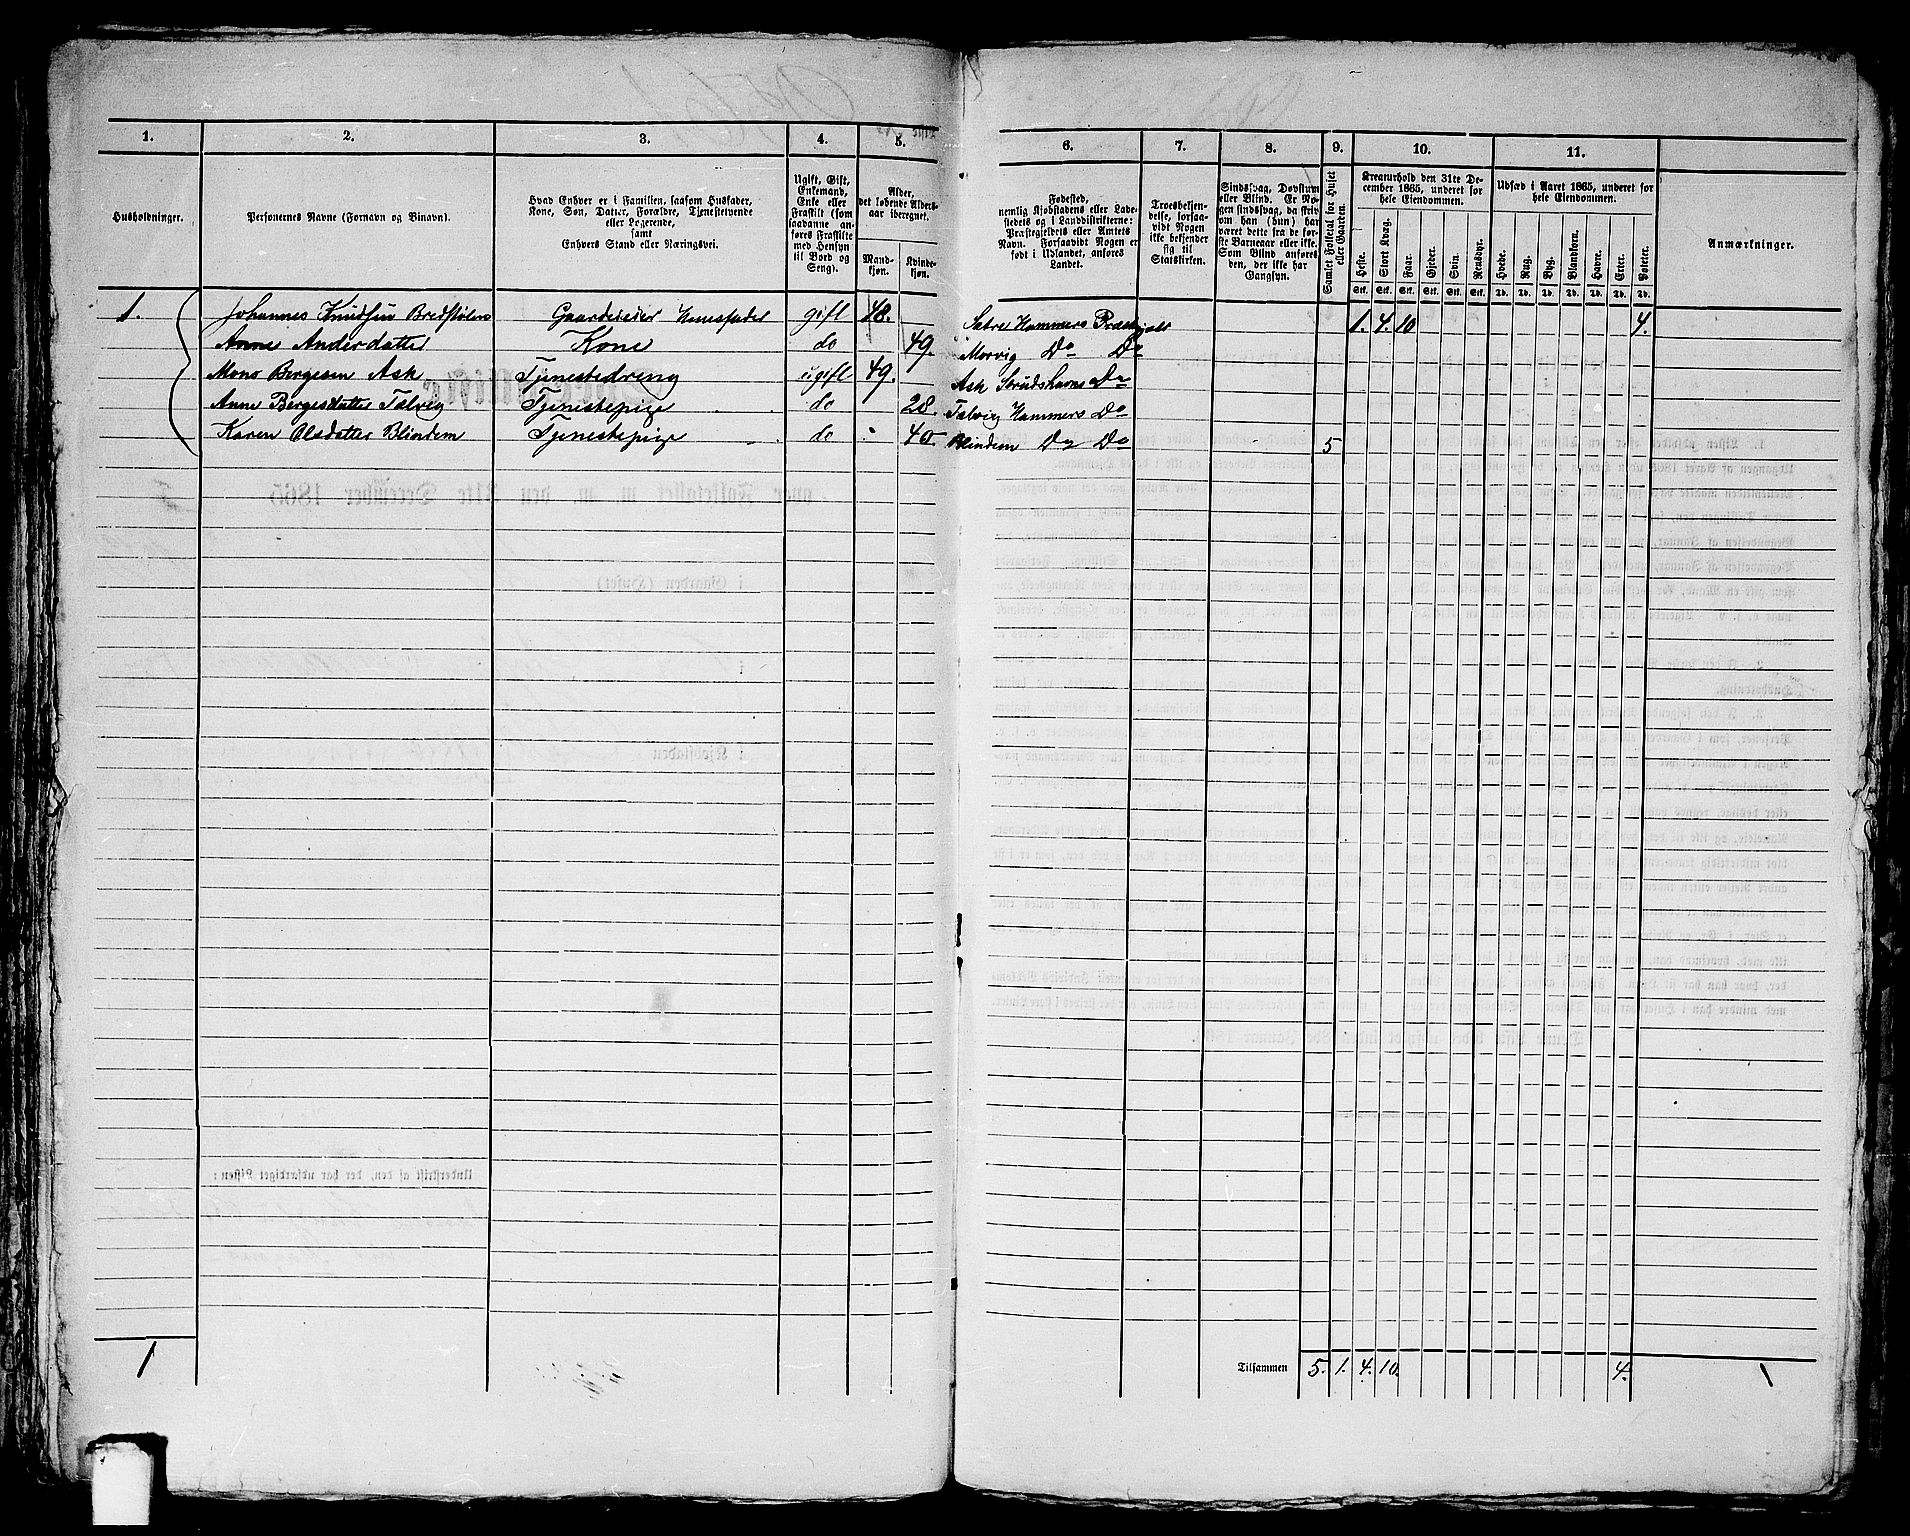 1.
2.
3.
4.
5.
Husholdninger.
Personernes Navne (Fornavn og Binavn).
Hvad Enhver er i Familien, saasom Husfader,
Kone, Søn, Datter, Forældre, Tjenestetyende
eller Logerende,
samt
Enhvers Stand eller Næringsvei.
Ugift, Gift,
Enkemand,
Enke eller
Fraskilt (som
saadanne an-
føres Fraskilte
med Hensyn
til Bord og
Seng).
Alder,
det løbende Alders-
aar iberegnet.
Mand-
kjøn.
Kvinde-
kjøn.
1. Johannes Knudsen Bredstølen Gaardeier Huusfader gift 48.
Anne Andersdatter Kone do 49.
Mons Bergesen Ask Tjenestedreng ugift 49.
Anne Bergesdatter Falvig Tjenestepige do 28.
Karen Olsdatter Blindem Tjenestepige do 40
1
6.
7.
8.
9.
10.
11.
Fødested,
nemlig Kjøbstadens eller Lade-
stedets og i Landdistrikterne:
Præstegjeldets eller Amtets
Navn. Forsaavidt Nogen er
født i Udlandet, anføres
Landet.
Troesbekjen-
delse, forsaa-
vidt Nogen
ikke bekjender
sig til
Statskirken.
Sindssvag, Døvstum
eller Blind. Er No-
gen sindssvag, da skriv
om han (hun) har
været dette fra de før-
ste Barneaar eller ikke.
Som Blind anføres
den, der ikke har
Gangsyn.
Samlet Folketal for Huset
eller Gaarden.
Kreaturhold den 31te De-
cember 1865, underet for
hele Eiendommen.
Heste.
Stort Kvæg.
Faar.
Gjeder.
Svin.
Rensdyr.
Stk. Stk. Stk. Stk. Stk. Stk.
Udsæd i Aaret 1865, underet for
hele Eiendommen.
Hvede.
Rug.
Byg.
Blandkorn.
Havre.
Erter.
Poteter.
Td. Td. Td. Td. Td. Td. Td.
Anmærkninger.
Sætre Hammers Præstgjeld 1. 4. 10 4.
Morvig Do Do
Ask Strudshavns Do
Falvig Hammers Do
Blindem Do Do 5
Tilsammen 5. 1. 4. 10. 4.
1